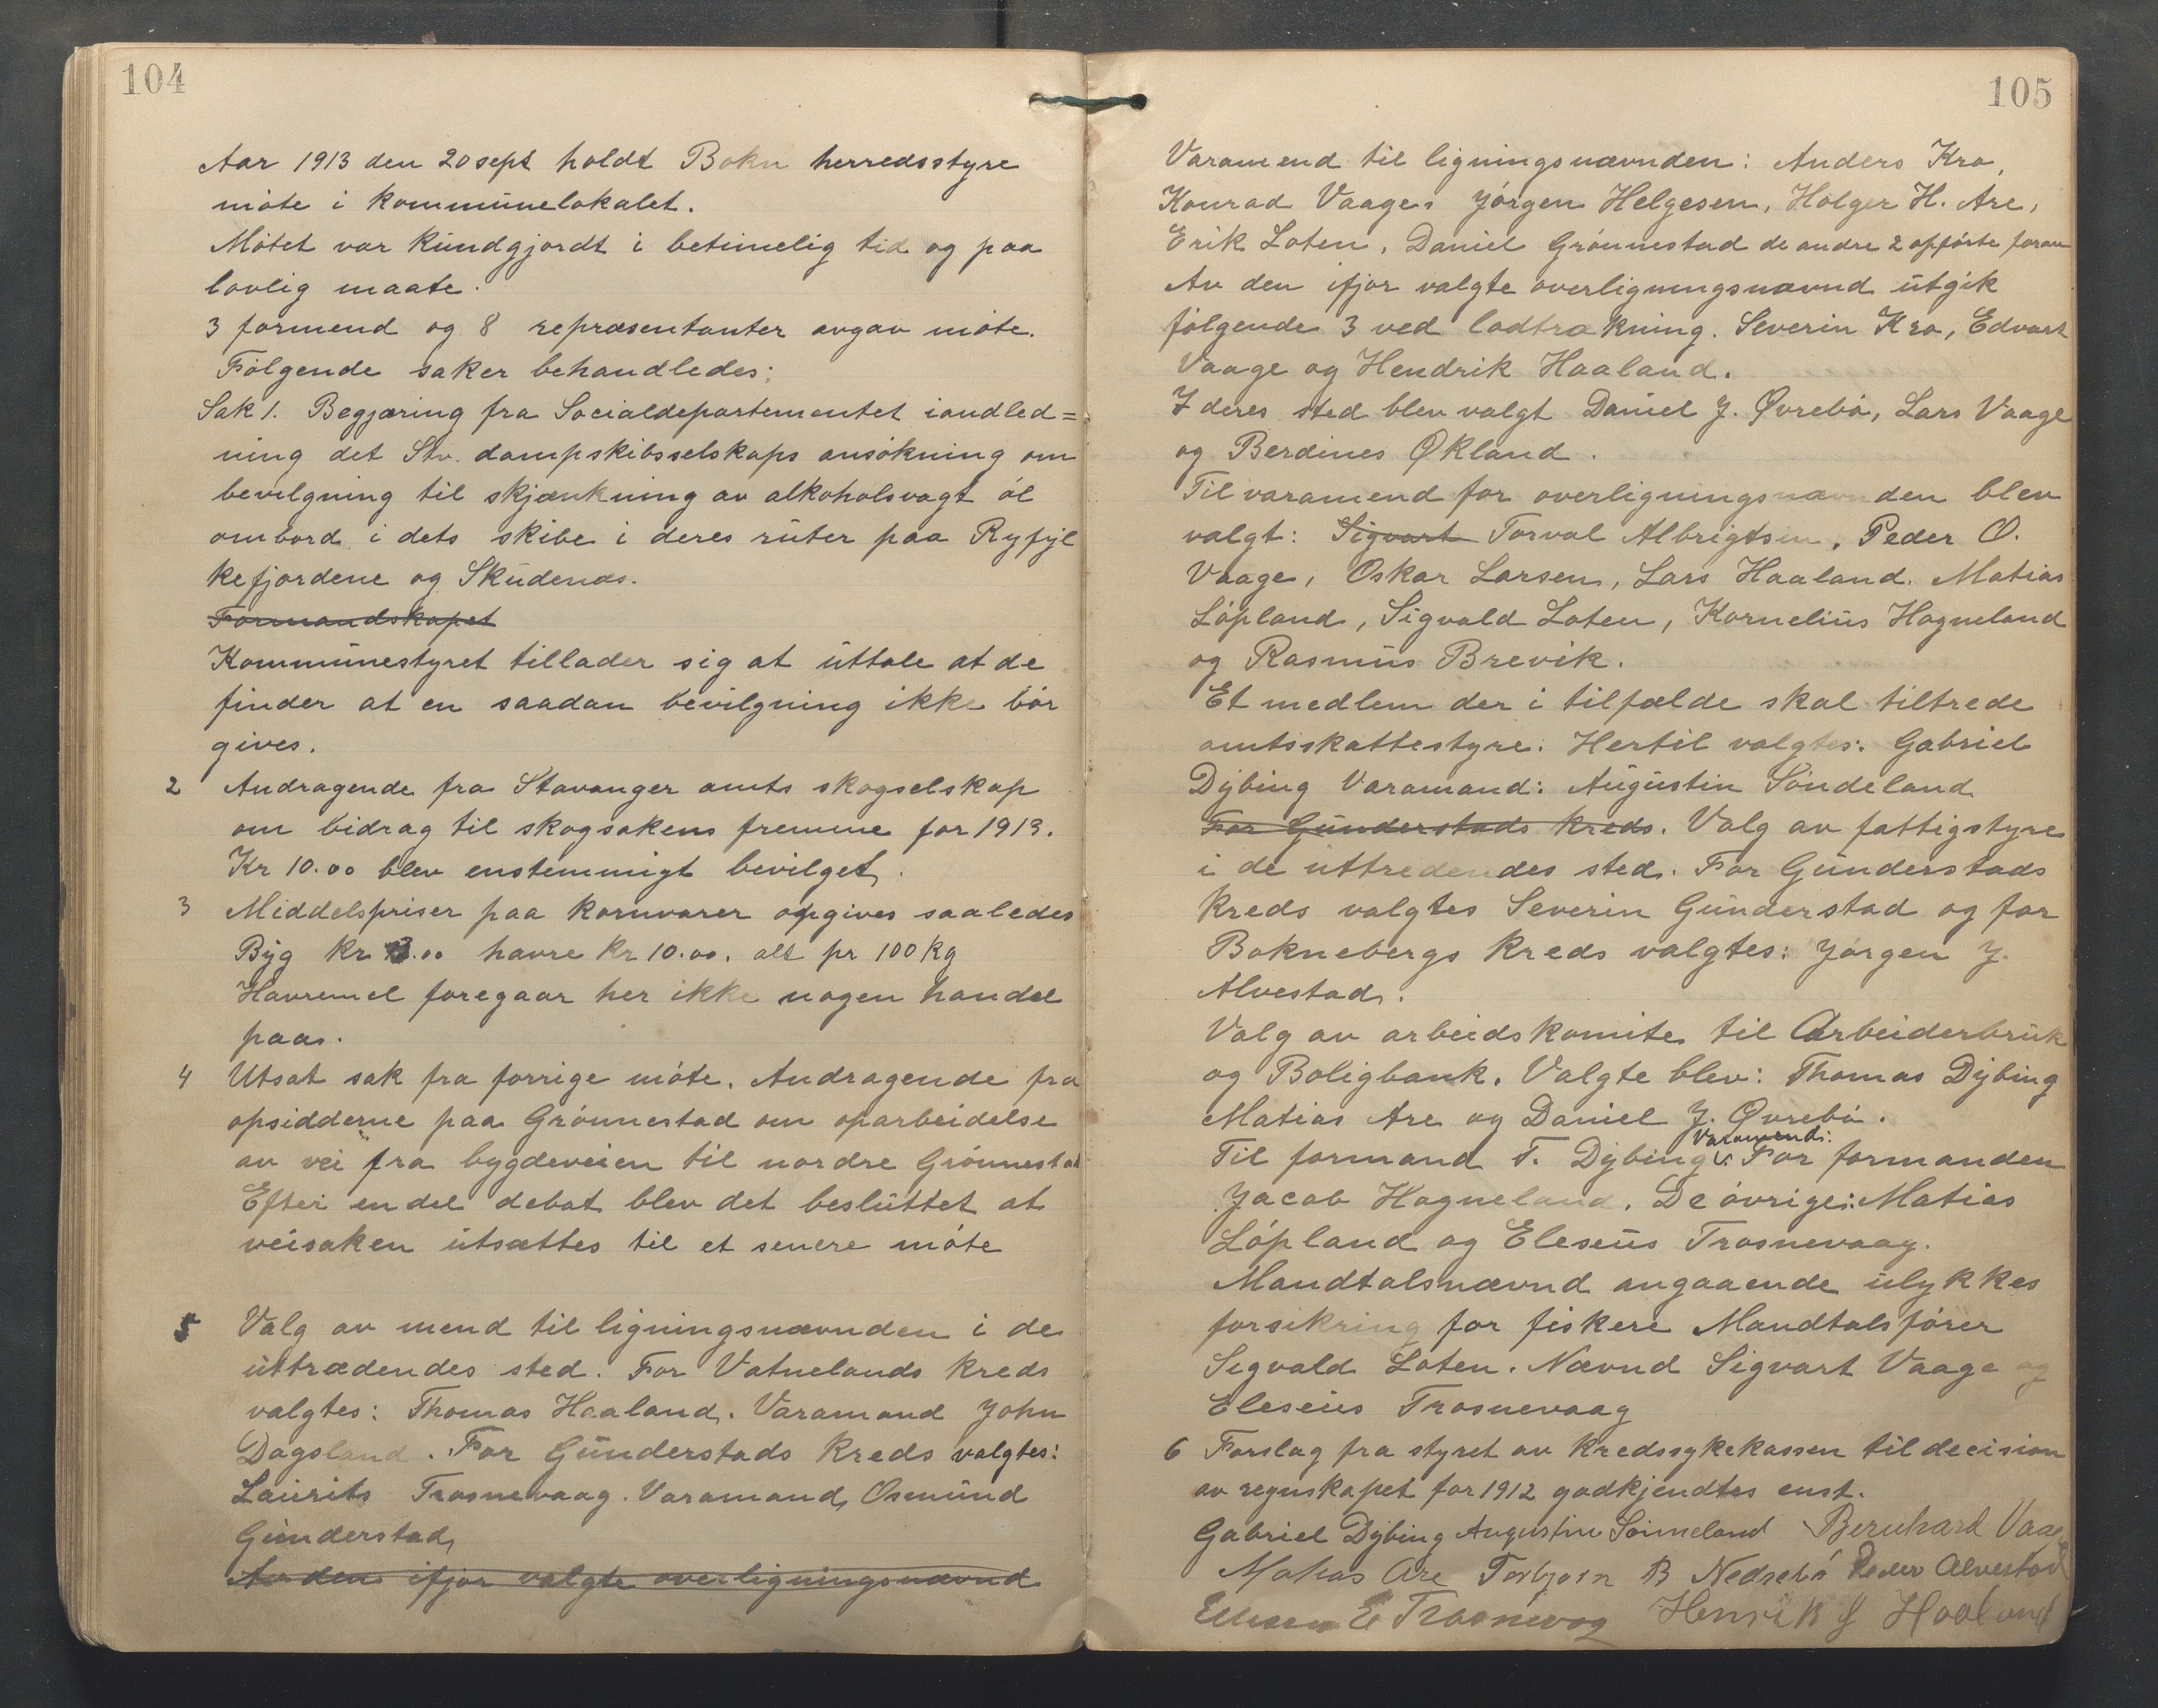 104
Aar 1913 den 20 sept holdt Bokn herredsstyre
møte i kommunelokalet.
Møtet var kundgjordt i betimelig tid og paa
lovlig maate.
3 formend og 8 repræsentanter avgav møte.
Følgende saker behandledes:
Sak 1. Begjæring fra Socialdepartementet iandled=
ning det Stv. dampskibsselskaps ansøkning om
bevilgning til skjænkning av alkoholsvagt øl
ombord i dets skibe i deres ruter paa Ryfyl
kefjordene og Skudenæs.
Formandskapet
Kommunestyret tillader sig at uttale at de
finder at en saadan bevilgning ikke bør
gives.
2 Andragende fra Stavanger amts skogselskap
om bidrag til skogsakens fremme for 1913.
Kr 10.00 blev enstemmigt bevilget.
3 Middelspriser paa kornvarer opgives saaledes
Byg kr 13.00 havre kr 10.00. alt pr 100 kg
Havremel foregaar her ikke nogen handel
paa.
4 Utsat sak fra forrige møte. Andragende fra
opsidderne paa Grønnestad om oparbeidelse
av vei fra bygdeveien til nordre Grønnestad
Efter endel debat blev det besluttet at
veisaken utsættes til et senere møte
5 Valg av mend til ligningsnævnden i de
uttrædendes sted. For Vatnelands kreds
valgtes: Thomas Haaland. Varamand John
Dagsland. For Gunderstads kreds valgtes:
Laurits Trosnevaag. Varamand, Osmund
Gunderstad,
Av den ifjor valgte overligningsnævnd
105
Varamend til ligningsnævnden: Anders Kro,
Konrad Vaage. Jørgen Helgesen, Holger H. Are,
Erik Loten, Daniel Grønnestad de andre 2 opførte foran
Av den ifjor valgte overligningsnævnd utgik
følgende 3 ved lodtrækning. Severin Kro, Edvart
Vaage og Hendrik Haaland.
I deres sted blev valgt Daniel J. Øvrebø, Lars Vaage
og Berdines Økland.
Til varamend for overligningsnævnden blev
valgt: Sigvart Torval Albrigtsen, Peder O.
Vaage, Oskar Larsen, Lars Haaland. Matias
Løpland, Sigvald Loten, Kornelius Hogneland
og Rasmus Brevik.
Et medlem der i tilfælde skal tiltrede
amtsskattestyre. Hertil valgtes: Gabriel
Dybing Varamand: Augustin Søndeland
For Gunderstads kreds. Valg av fattigstyre
i de uttredendes sted. For Gunderstads
Kreds valgtes Severin Gunderstad og for
Boknebergs Kreds valgtes: Jørgen J.
Alvestad.
Valg av arbeidskomite til Arbeiderbruk
og Boligbank. Valgte blev: Thomas Dybing
Matias Are og Daniel J. Øvrebø.
Varamend:
Til formand T. Dybing v. For formanden
Jacob Hogneland. De øvrige: Matias
Løpland og Eleseus Trosnevaag.
Mandtalsnævnd angaaende ulykkes
forsikring for fiskere Mandtalsfører
Sigvald Loten. Nævnd Sigvart Vaage og
Eleseus Trosnevaag
6 Forslag fra styret av kredssykekassen til decision
av regnskapet for 1912 godkjendtes enst.
Gabriel Dybing Augustin Sønneland Bernhard Vaage
Matias Are Torbjørn B Nedrebø Peder Alvestad
E Trosnevog Henrik J Haaland